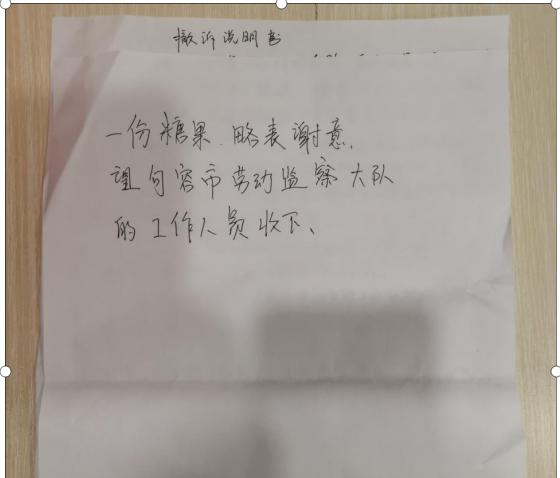 撤诉说明书
一份糖果、略表谢意,
望句容市劳动监察大队
的工作人员收下、